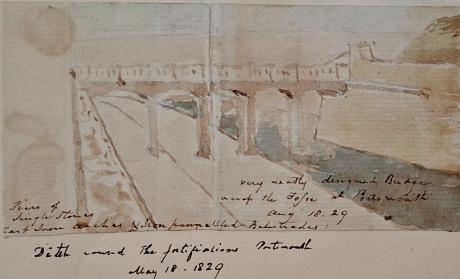 very neatly designed Bridge
over the Fosse at Portsmouth
Aug 18. 29
Piers of
Single Stones
Cast Iron arches & Iron pannelled Balustrades:
Ditch round The fortifications Portsmouth
May 18. 1829